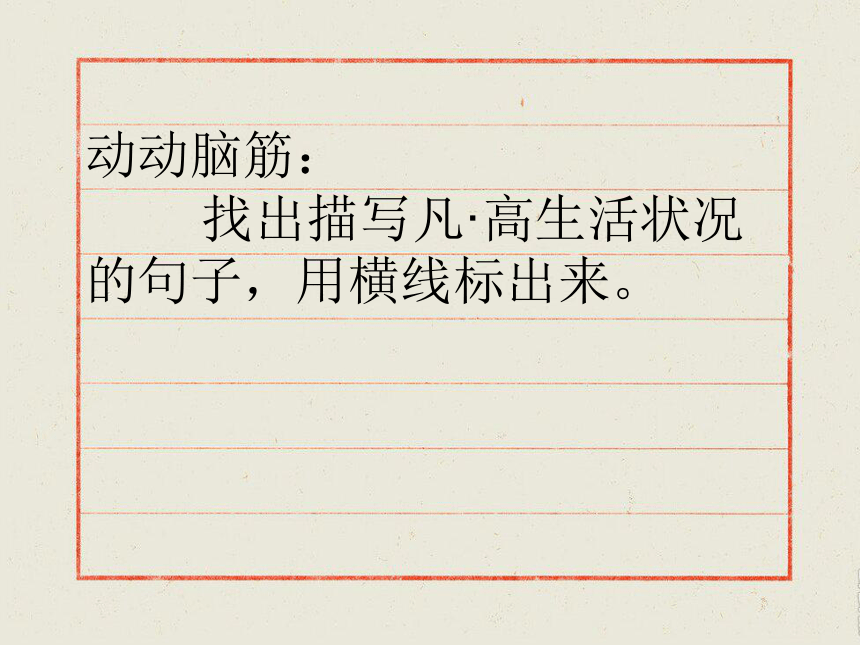 动动脑筋：
找出描写凡·高生活状况
的句子，用横线标出来。